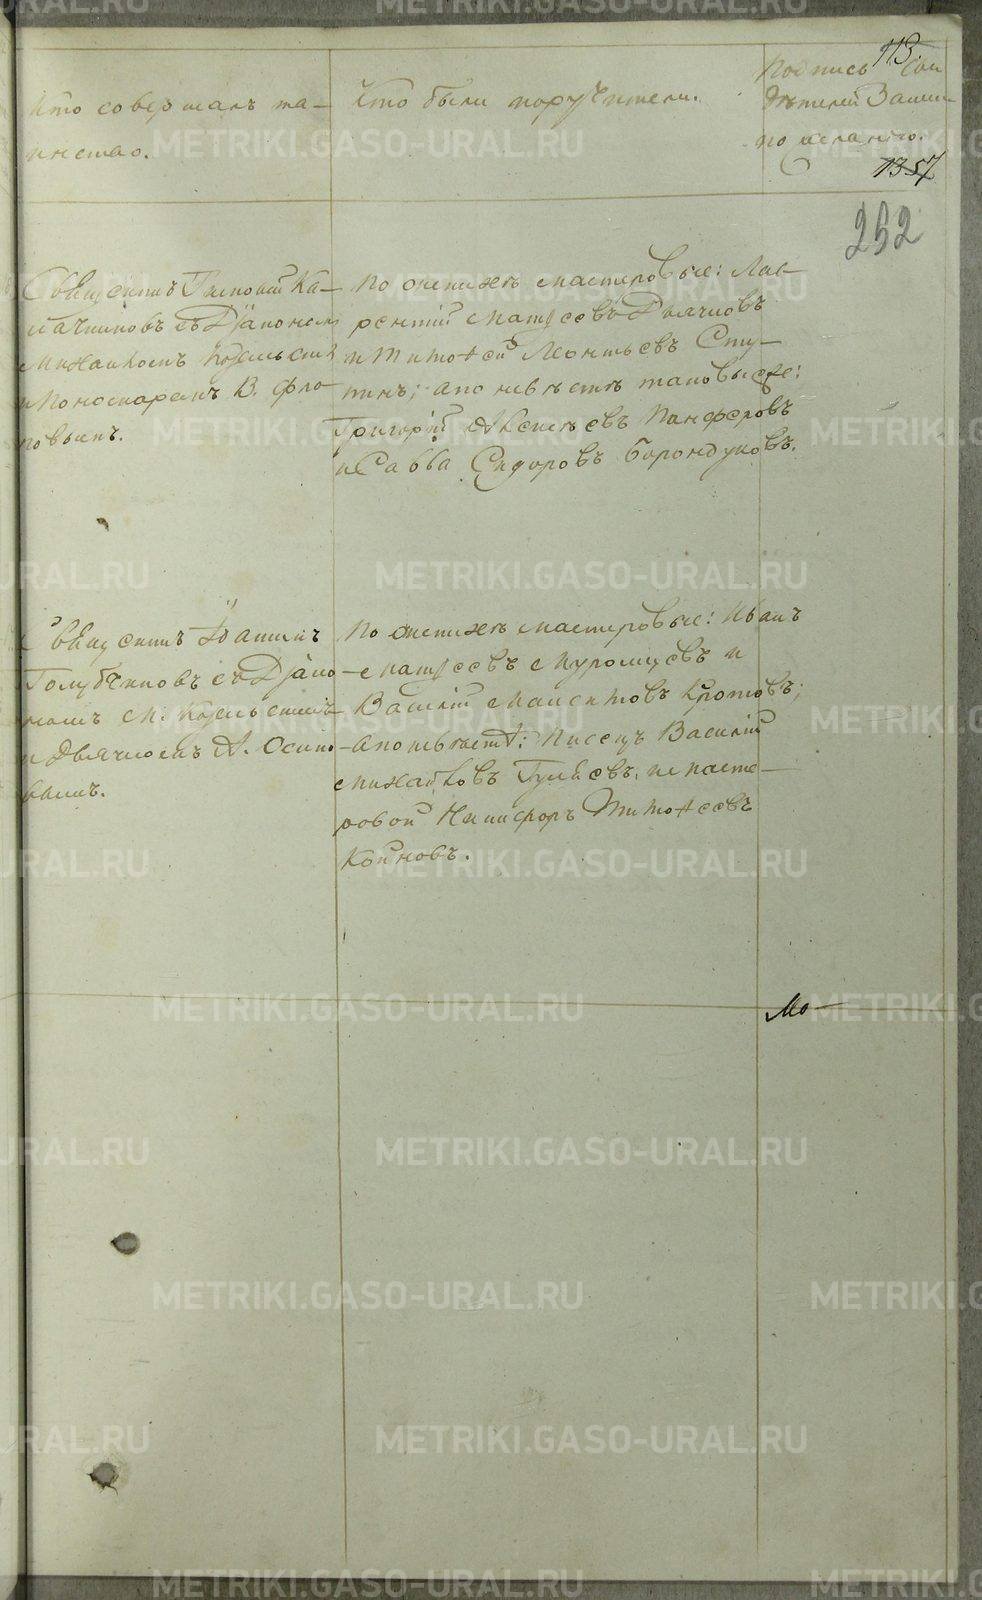 113.
Кто совершалъ та-
инство.
Кто были поручители.
Подпись сви
дѣтелей Записи
по желанію.
1357
252
Священникъ Ка-
лачниковъ съ Діакономъ
Михаиломъ
и Пономаремъ В. Фло
ровымъ.
По женихѣ мастеровые: Лав-
рентій Матѳеевъ Дьячковъ
и Тимоѳей Леонтьевъ Спу-
тинъ; а по невѣстѣ таковые же:
Григорій Алексѣевъ Панферовъ
и Савва Сидоровъ Борондуковъ.
Священникъ Іоаннъ
Голубчиковъ съ Діако
номъ М.
и Дьячкомъ А. Осипо
вымъ.
По женихѣ мастеровые: Иванъ
Матѳеевъ Муромцевъ и
Василій Кротовъ;
а по невѣстѣ: Писецъ Василій
Михайловъ Гуляевъ, и масте-
ровой Никифоръ Тимоѳеевъ
Койновъ.
Мо-
METRIKI.GASO-URAL.RU